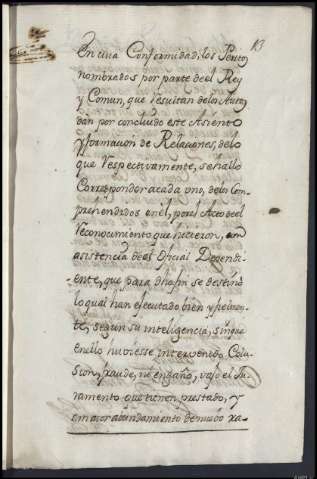 13
En cuia Conformidad, los Peritos
nombrados por parte de el Rey
y Comun, que resultan de lo Auta
dan por concluido este Asiento
y formacion de Relaciones, de lo
que respectivamente, se hallo
Corresponder a cada vno, de los Con-
prehendidos en èl, por el Acto de el
reconocimiento que hicieron, con
asistencia de el Oficial Dependi-
ente, que para dho fin se destinò
lo qual han ejecutado bien y fielmen-
te, segun su inteligencia, sin que
en ello hubiesse intervenido Colu-
sion, fraude, ni engaño, vajo el Ju-
ramento que tienen prestado, y
en maior abundamiento de nuevo ra-